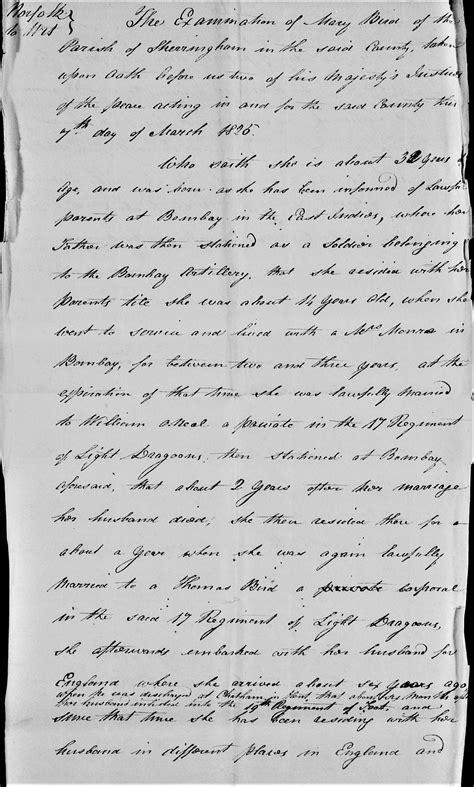 Norfolk
to Wit
The Examination of Mary Bird of the
Parish of Sherringham in the said County, taken
upon Oath before us two of his Majesty's Justices
of the peace acting in and for the said County this
7th day of March 1826.
Who saith she is about 32 Years of
Age, and was born as she has been informed of Lawful
parents at Bombay in the East Indies, where her
Father was then stationed as a Soldier belonging
to the Bombay Artillery, that she resided with her
parents till she was about 14 Years Old, when she
went to service and lived with a Mrs Monro in
Bombay, for between two and three Years, at the
expiration of that time she was lawfully Married
to William a private in the 17 Regiment
of Light Dragoons, then stationed at Bombay
aforesaid, that about 2 Years after her marriage
her husband died, she then resided there for
about a Year when she was again lawfully
Married to a Thomas Bird a private Corporal
in the said 17 Regiment of Light Dragoons,
she afterwards embarked with her husband for
England where she arrived about Years ago,
when he was discharged at Chatham in Kent, that about six Months after
her husband enlisted into the 19th Regiment of Foot and
since that time she has been residing with her
husband in different places in England and